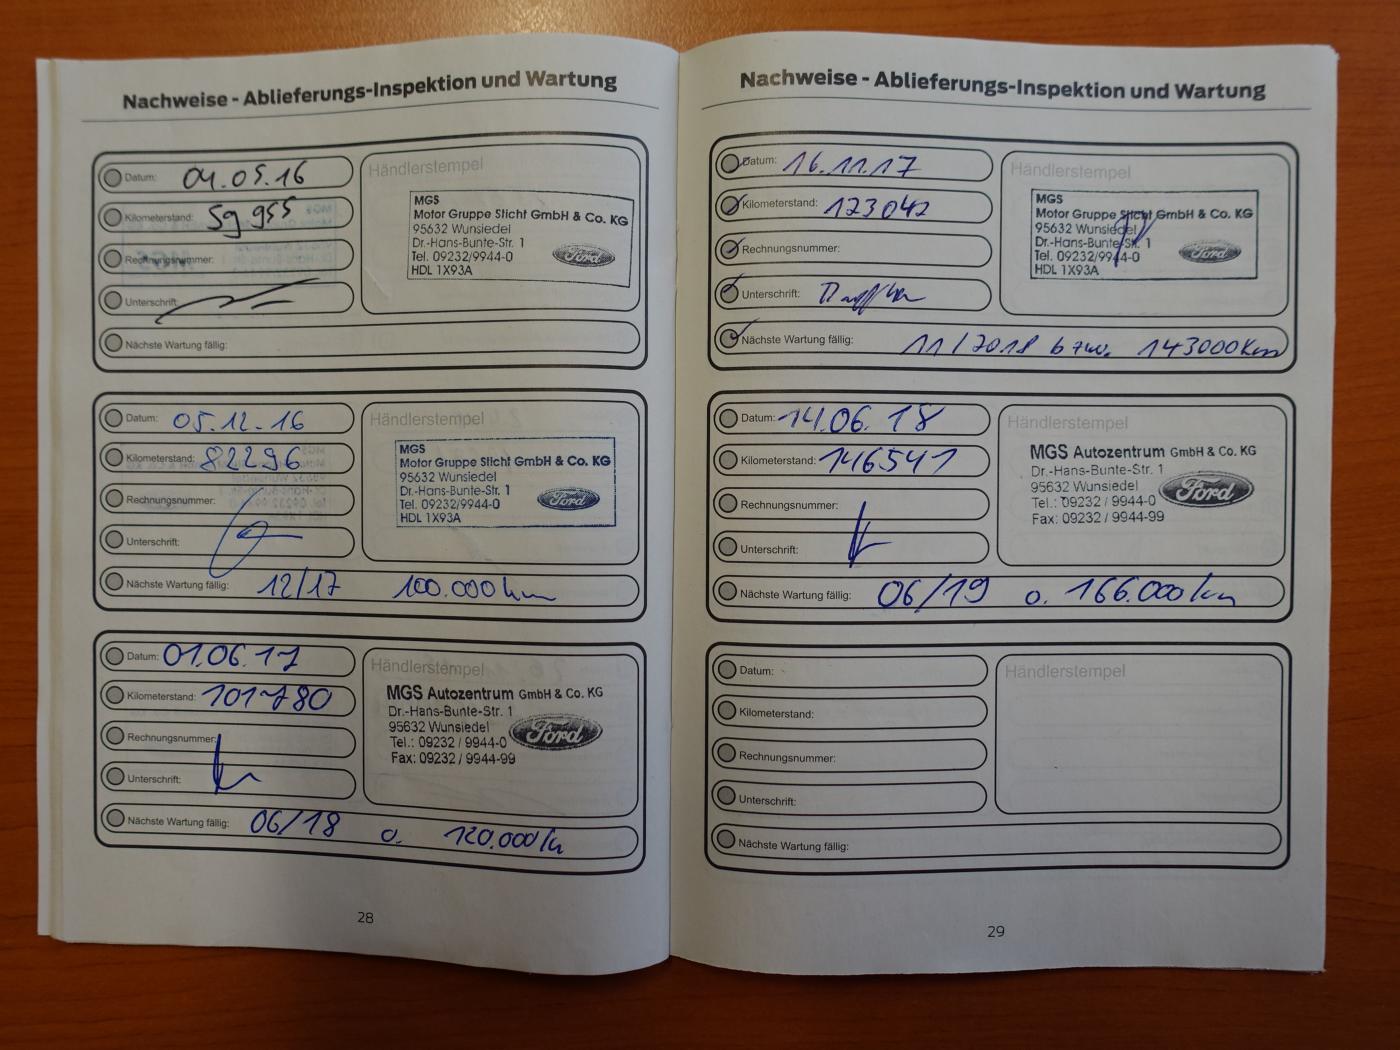 Nachweise - Ablieferungs-Inspektion und Wartung
Datum: 04.05.16
Kilometerstand: 59 955
Rechnungsnummer:
Unterschrift:
Nächste Wartung fällig:
Händlerstempel
MGS
Motor Gruppe Sticht GmbH & Co. KG
95632 Wunsiedel
Dr.-Hans-Bunte-Str. 1
Tel. 09232/9944-0
HDL 1X93A
Ford
Datum: 05.12.16
Kilometerstand: 82296
Rechnungsnummer:
Unterschrift:
Nächste Wartung fällig: 12/17 100.000 km
Händlerstempel
MGS
Motor Gruppe Sticht GmbH & Co. KG
95632 Wunsiedel
Dr.-Hans-Bunte-Str. 1
Tel. 09232/9944-0
HDL 1X93A
Ford
Datum: 01.06.17
Kilometerstand: 101780
Rechnungsnummer:
Unterschrift:
Nächste Wartung fällig: 06/18 o. 120.000 km
Händlerstempel
MGS Autozentrum GmbH & Co. KG
Dr.-Hans-Bunte-Str. 1
95632 Wunsiedel
Tel.: 09232 / 9944-0
Fax: 09232 / 9944-99
Ford
28
Nachweise - Ablieferungs-Inspektion und Wartung
Datum: 16.11.17
Kilometerstand: 123042
Rechnungsnummer:
Unterschrift:
Nächste Wartung fällig: 11/2018 bzw. 143000 km
Händlerstempel
MGS
Motor Gruppe Sticht GmbH & Co. KG
95632 Wunsiedel
Dr.-Hans-Bunte-Str. 1
Tel. 09232/9944-0
HDL 1X93A
Ford
Datum: 14.06.18
Kilometerstand: 146541
Rechnungsnummer:
Unterschrift:
Nächste Wartung fällig: 06/19 o. 166.000 km
Händlerstempel
MGS Autozentrum GmbH & Co. KG
Dr.-Hans-Bunte-Str. 1
95632 Wunsiedel
Tel.: 09232 / 9944-0
Fax: 09232 / 9944-99
Ford
Datum:
Kilometerstand:
Rechnungsnummer:
Unterschrift:
Nächste Wartung fällig:
Händlerstempel
29